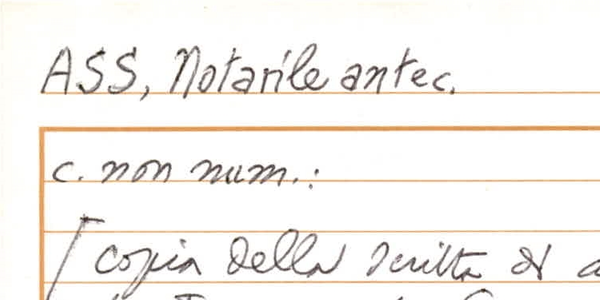 ASS, Notarile antec.
c. non num.:
[copia della scritta di